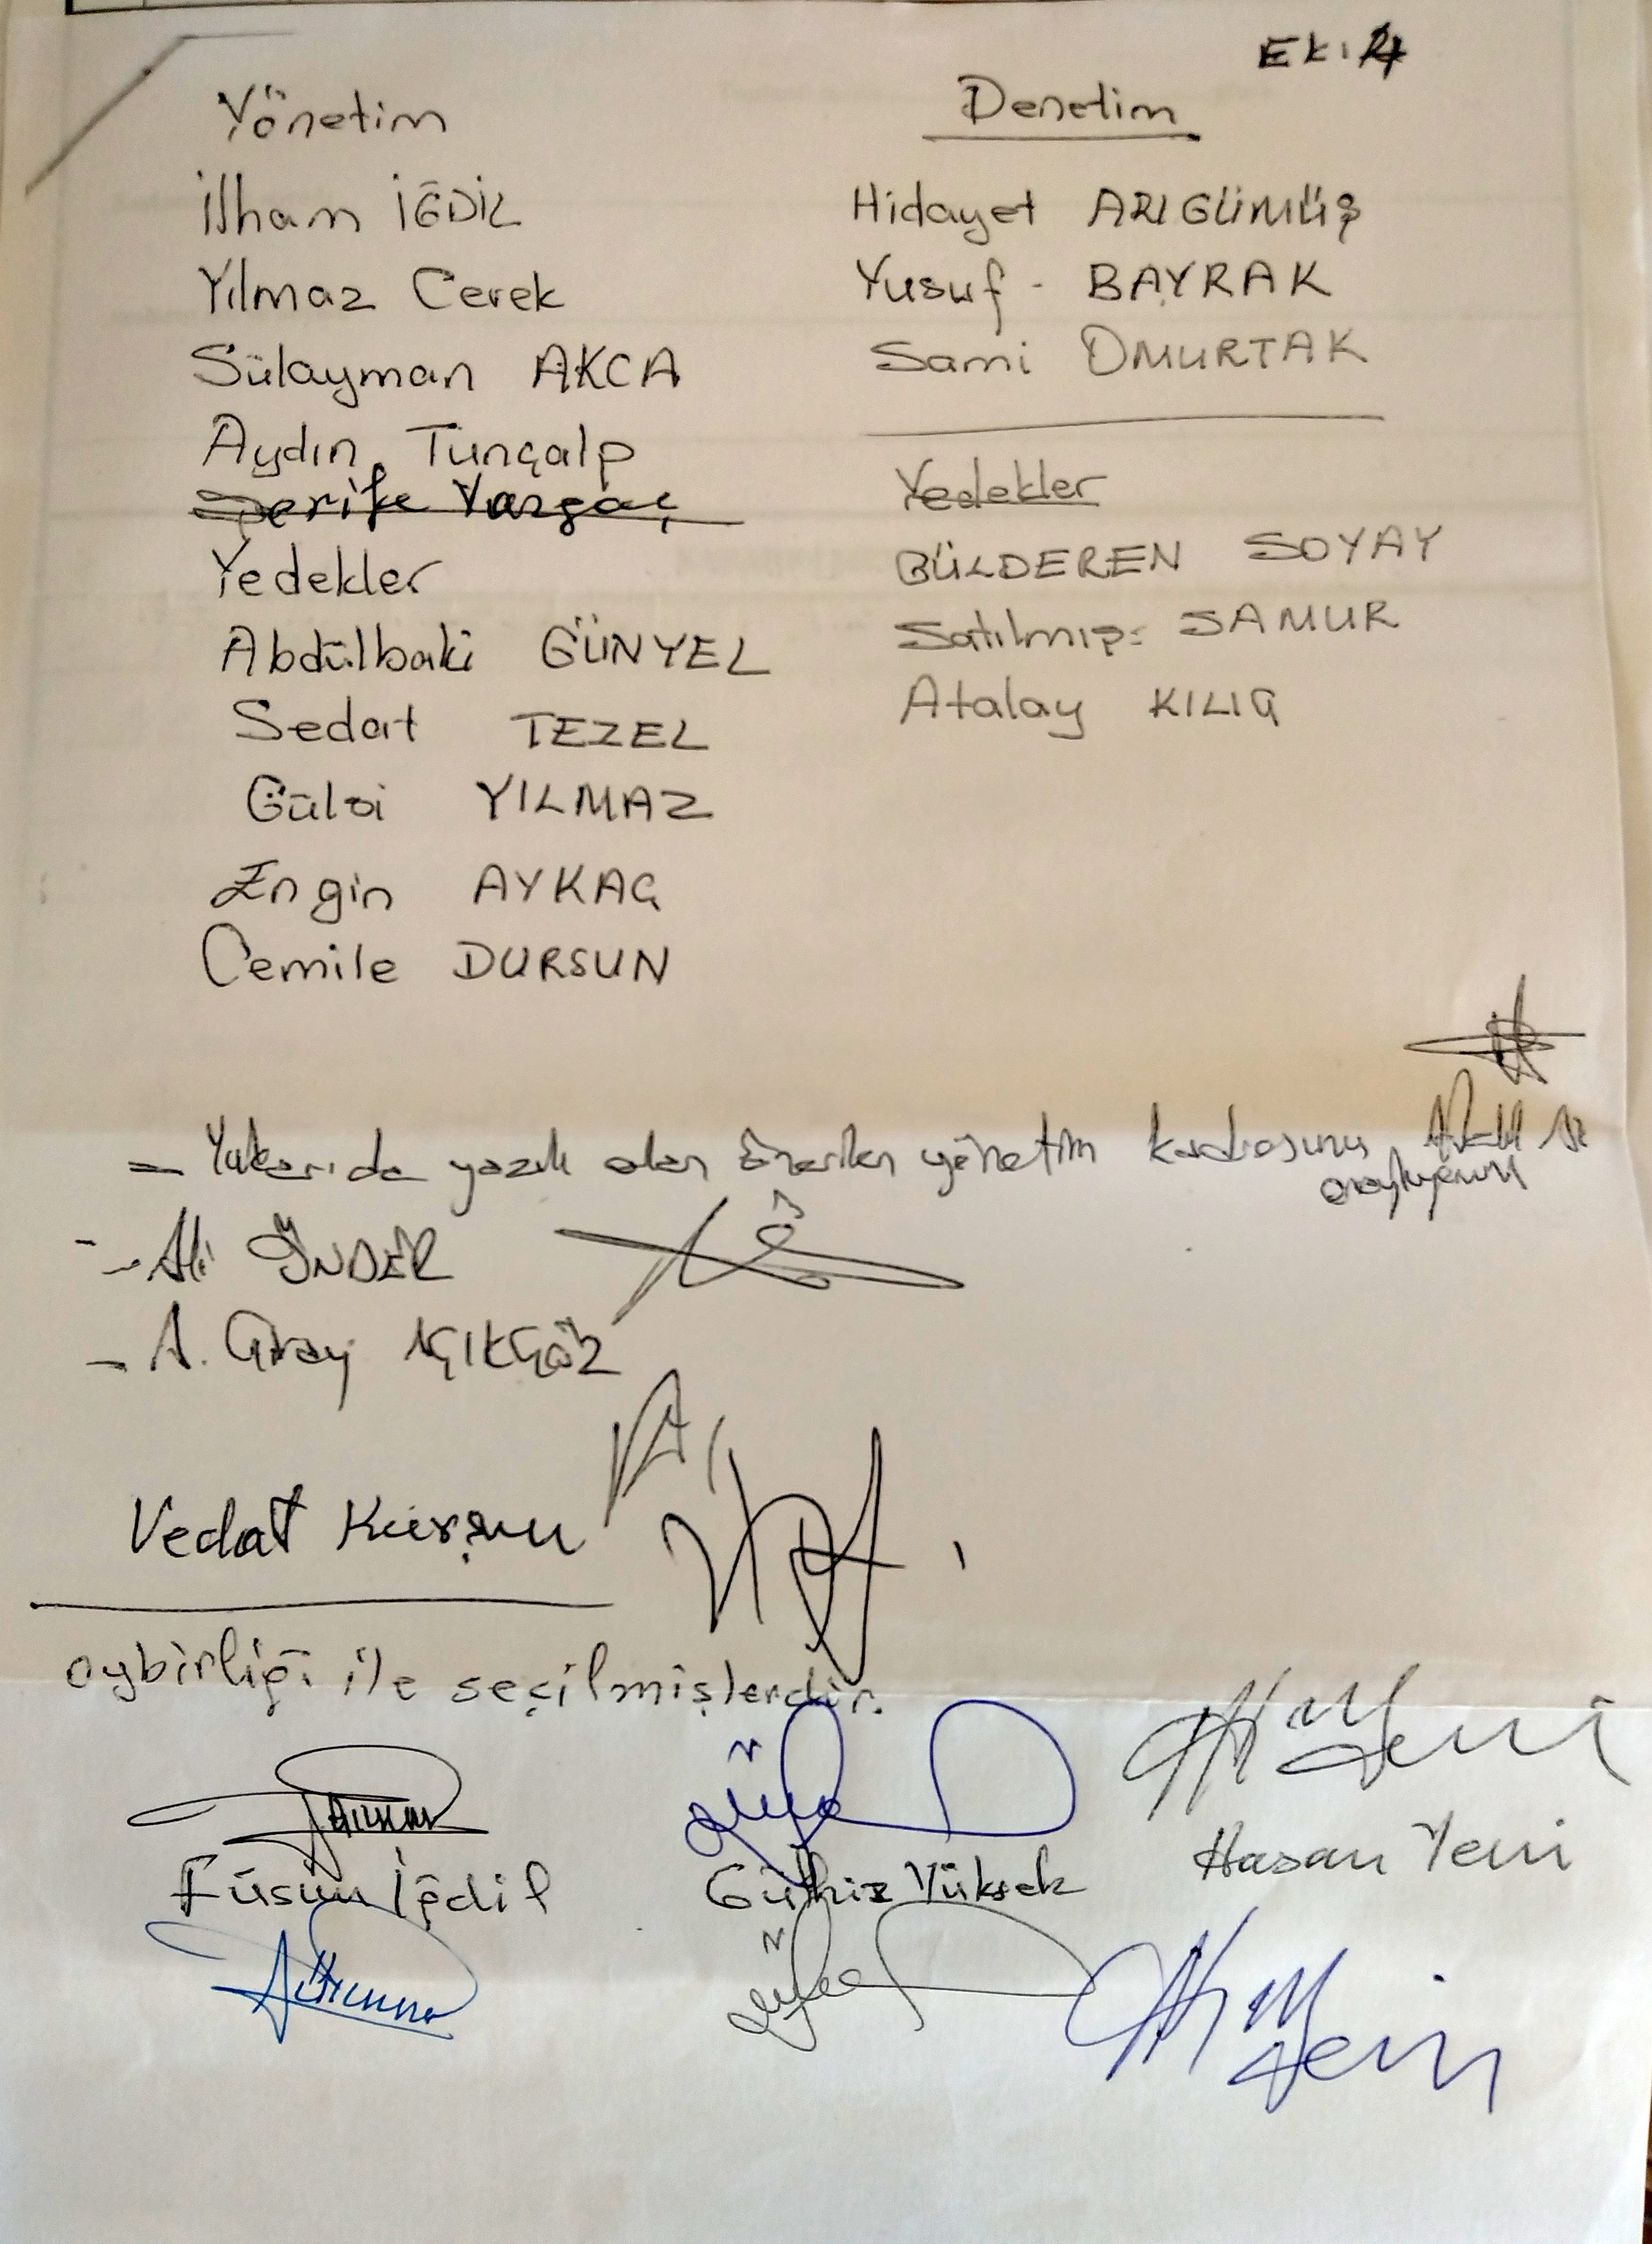 EK:
Yönetim
İlham İĞDİL
Yılmaz Cerek
Sülayman AKCA
Aydın Tunçalp
Şerife Yazgaç
Yedekler
Abdülbaki GÜNYEL
Sedat TEZEL
Gülsi YILMAZ
Engin AYKAÇ
Cemile DURSUN
Denetim
Hidayet ARIGÜMÜŞ
Yusuf - BAYRAK
Sami OMURTAK
Yedekler
GÜLDEREN SOYAY
Satılmış: SAMUR
Atalay KILIÇ
- Yukarıda yazılı olan önerilen yönetim kadrosunu
onaylıyorum
- Ali ÖNDER
- A. Giray AÇIKGÖZ
Vedat Kurşun
oybirliği ile seçilmişlerdir.
Füsun İğdil Gülhiz Yüksek Hasan Yeni